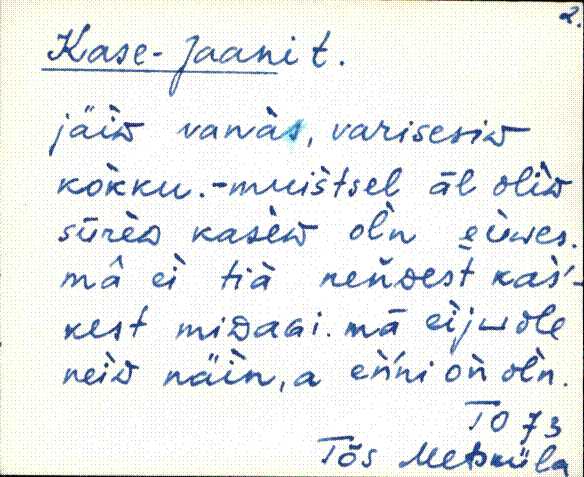 2.
Kase-Jaanit.
jäiᴅ vanàs, varisesiᴅ
kòkku.-muištsel āl oliᴅ
sūrèᴅ kasèᴅ ol̀n
mâ ei tià neńᴅest kaś-
kest miᴅagi. mā
neiᴅ näìn, a eńni on ol̀n.
TO 73
Tõs Metsküla